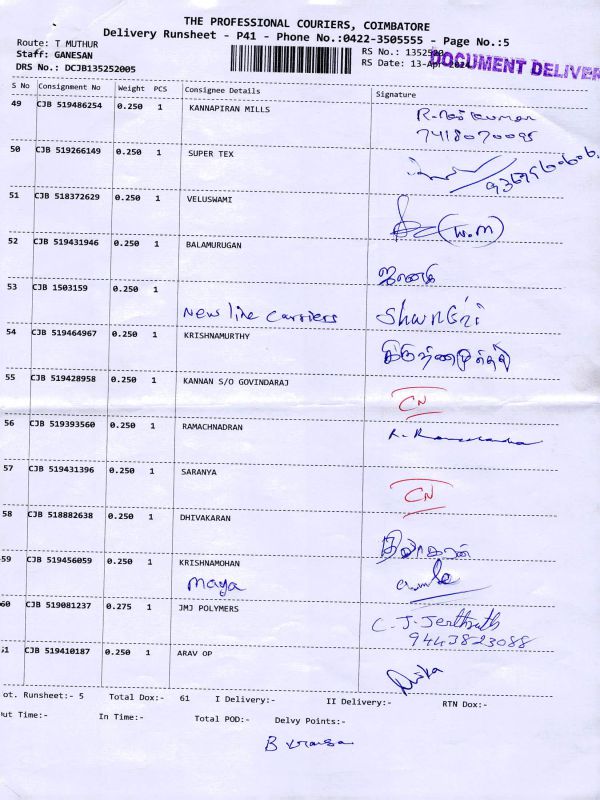 THE PROFESSIONAL COURIERS, COIMBATORE
Delivery Runsheet - P41 - Phone No.:0422-3505555 - Page No.:5
Route: T MUTHUR
Staff: GANESAN
DRS No.: DCJB135252005
RS No.: 1352520
RS Date: 13-Apr-2024
DOCUMENT DELIVER
S No Consignment No Weight PCS Consignee Details Signature
49 CJB 519486254 0.250 1 KANNAPIRAN MILLS
7418070095
50 CJB 519266149 0.250 1 SUPER TEX
51 CJB 518372629 0.250 1 VELUSWAMI (W.M)
52 CJB 519431946 0.250 1 BALAMURUGAN
53 CJB 1503159 0.250 1
New line Carriers
54 CJB 519464967 0.250 1 KRISHNAMURTHY
55 CJB 519428958 0.250 1 KANNAN S/O GOVINDARAJ CN
56 CJB 519393560 0.250 1 RAMACHNADRAN
57 CJB 519431396 0.250 1 SARANYA CN
58 CJB 518882638 0.250 1 DHIVAKARAN
59 CJB 519456059 0.250 1 KRISHNAMOHAN
maya
60 CJB 519081237 0.275 1 JMJ POLYMERS
9443823088
61 CJB 519410187 0.250 1 ARAV OP
ot. Runsheet:- 5 Total Dox:- 61 I Delivery:- II Delivery:- RTN Dox:-
ut Time:- In Time:- Total POD:- Delvy Points:-